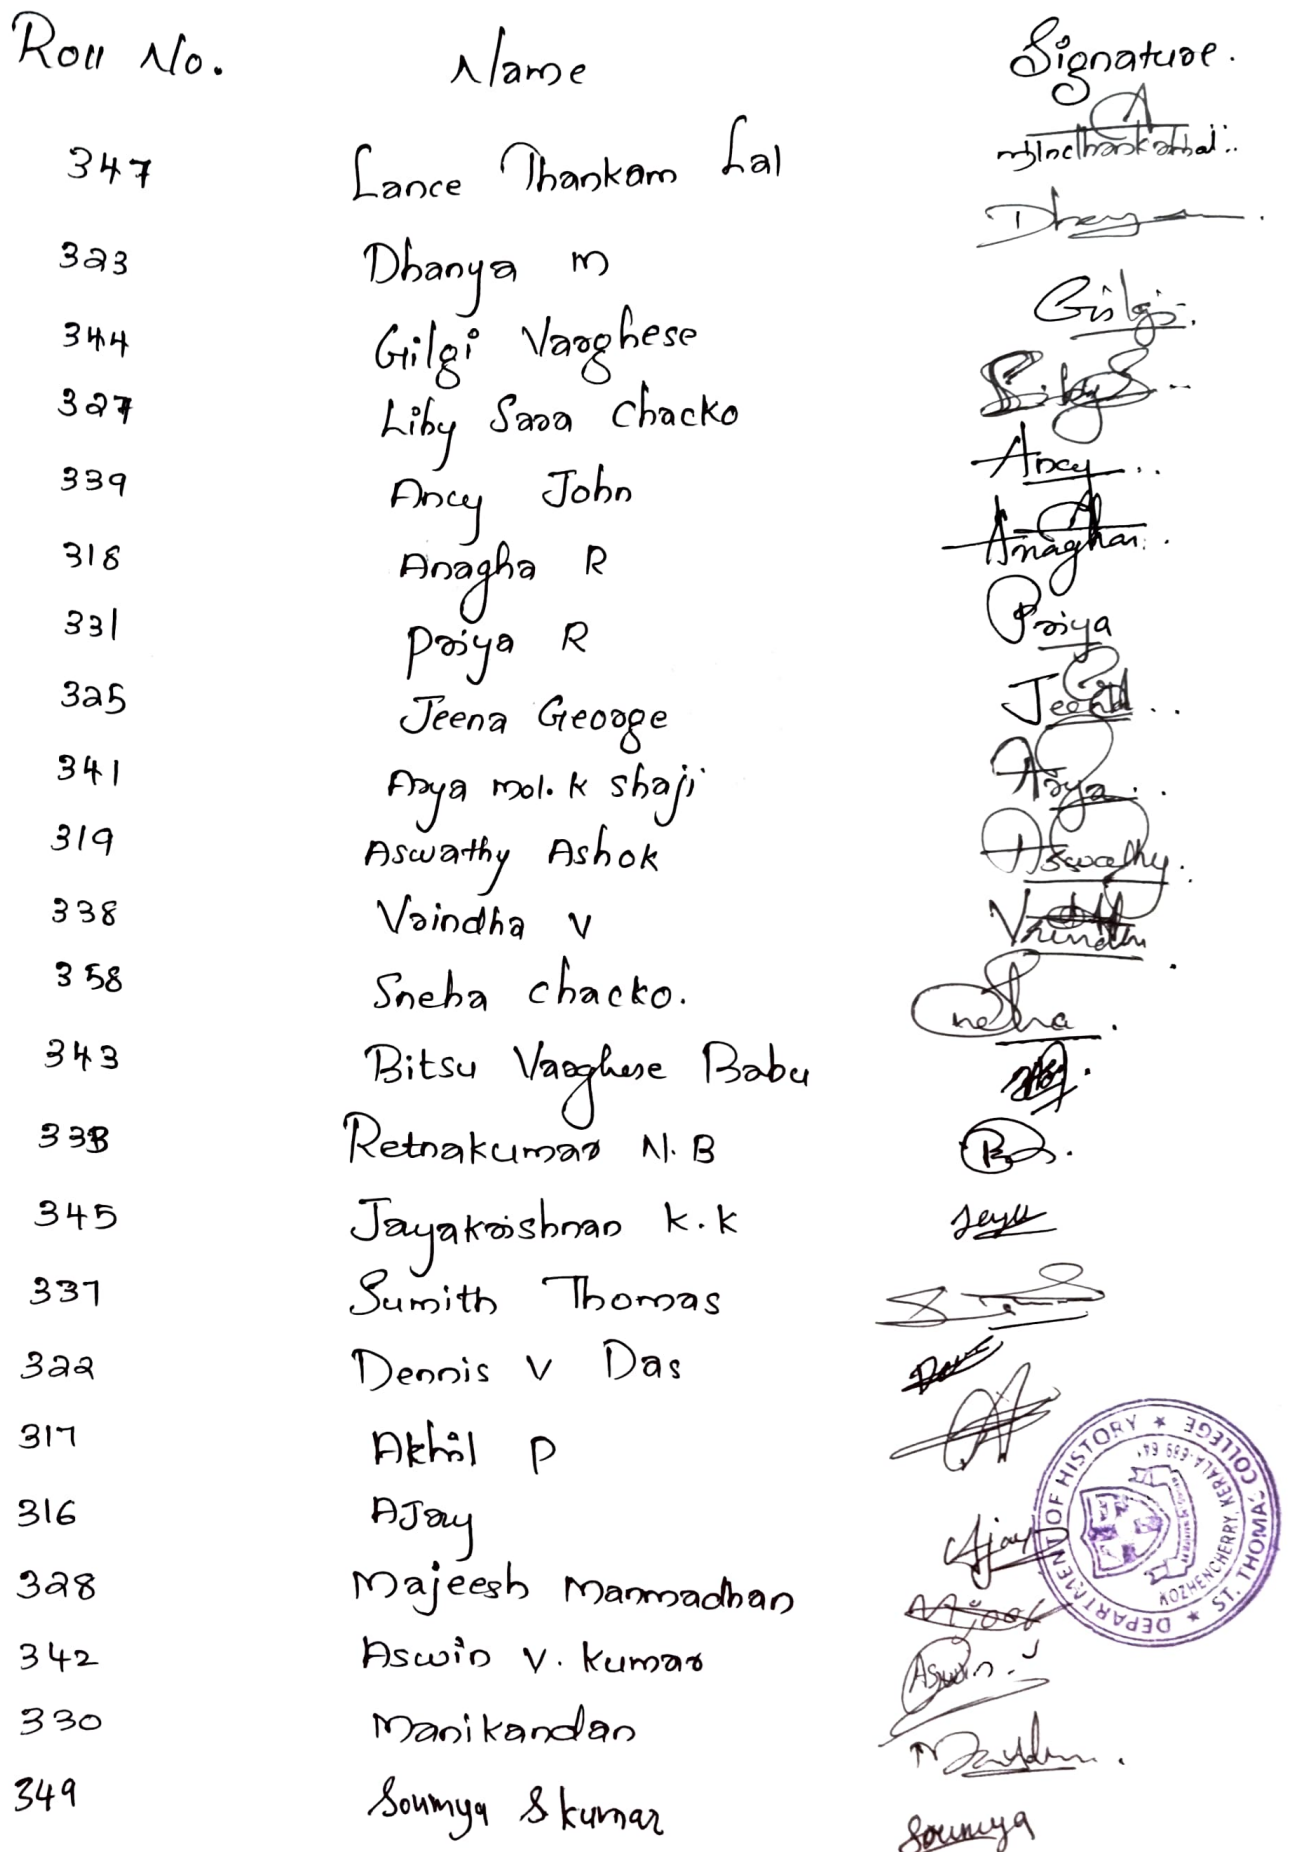 Roll No. Name Signature.
347 Lance Thankam Lal
323 Dhanya M Dhanya
344 Gilgi Varghese Gilgi
327 Liby Sara Chacko
339 Ancy John Ancy
318 Anagha R Anagha
331 Priya R Priya
325 Jeena George Jeena
341 Arya mol. K Shaji Arya
319 Aswathy Ashok Aswathy
338 Vrindha V
358 Sneha Chacko. Sneha
343 Bitsu Varghese Babu
333 Retnakumar N.B
345 Jayakrishnan K.K
337 Sumith Thomas
322 Dennis V Das
317 Akhil P
316 Ajay Ajay
328 Majeesh Manmadhan
342 Aswin V. Kumar Aswin
330 Manikandan
349 Soumya S Kumar Soumya
DEPARTMENT OF HISTORY ★ ST. THOMAS COLLEGE ★
KOZHENCHERRY, KERALA-689 641